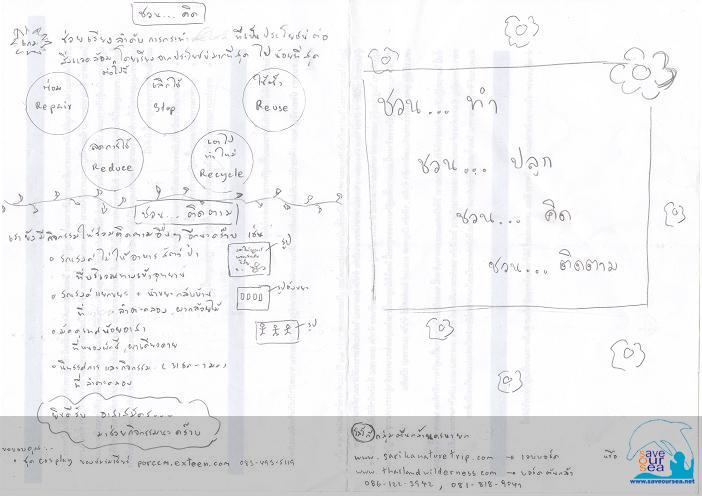 ชวน... คิด
ช่วยเรียงลำดับการกระทำ ที่เป็นประโยชน์ต่อ
สิ่งแวดล้อม โดยเรียงจากประโยชน์มากที่สุด ไปน้อยที่สุด
ต่อไปนี้
ซ่อม
Repair
เลิกใช้
Stop
ใช้ซ้ำ
Reuse
ลดการใช้
Reduce
Recycle
ชวน... ติดตาม
เรายังมีกิจกรรมให้ร่วมติดตามอื่นๆ อีกนะคร๊าบ เช่น
รณรงค์ ไม่ให้อาหารสัตว์ป่า
ที่บริเวณทางเข้าอุทยาน
รณรงค์ แยกขยะ + นำขยะกลับบ้าน
ที่ ลำตะคลอง, ผากล้วยไม้
รูป
รูปถังขยะ
มัคคุเทศก์น้อยอาสา
ที่หนองผักชี, ผาเดียวดาย
รูป
นิทรรศการ และกิจกรรม
ที่ ลำตะคลอง
ยินดีรับ อาสาสมัคร...
มาช่วยกิจกรรมนะคร๊าบ
ขอขอบคุณ :-
ชุด cosplay porccm.exteen.com
ชวน... ทำ
ชวน... ปลูก
ชวน... คิด
ชวน... ติดตาม
www.sarikanaturetrip.com → หรือ
www.thailandwilderness.com →
save
our
sea
www.saveoursea.net